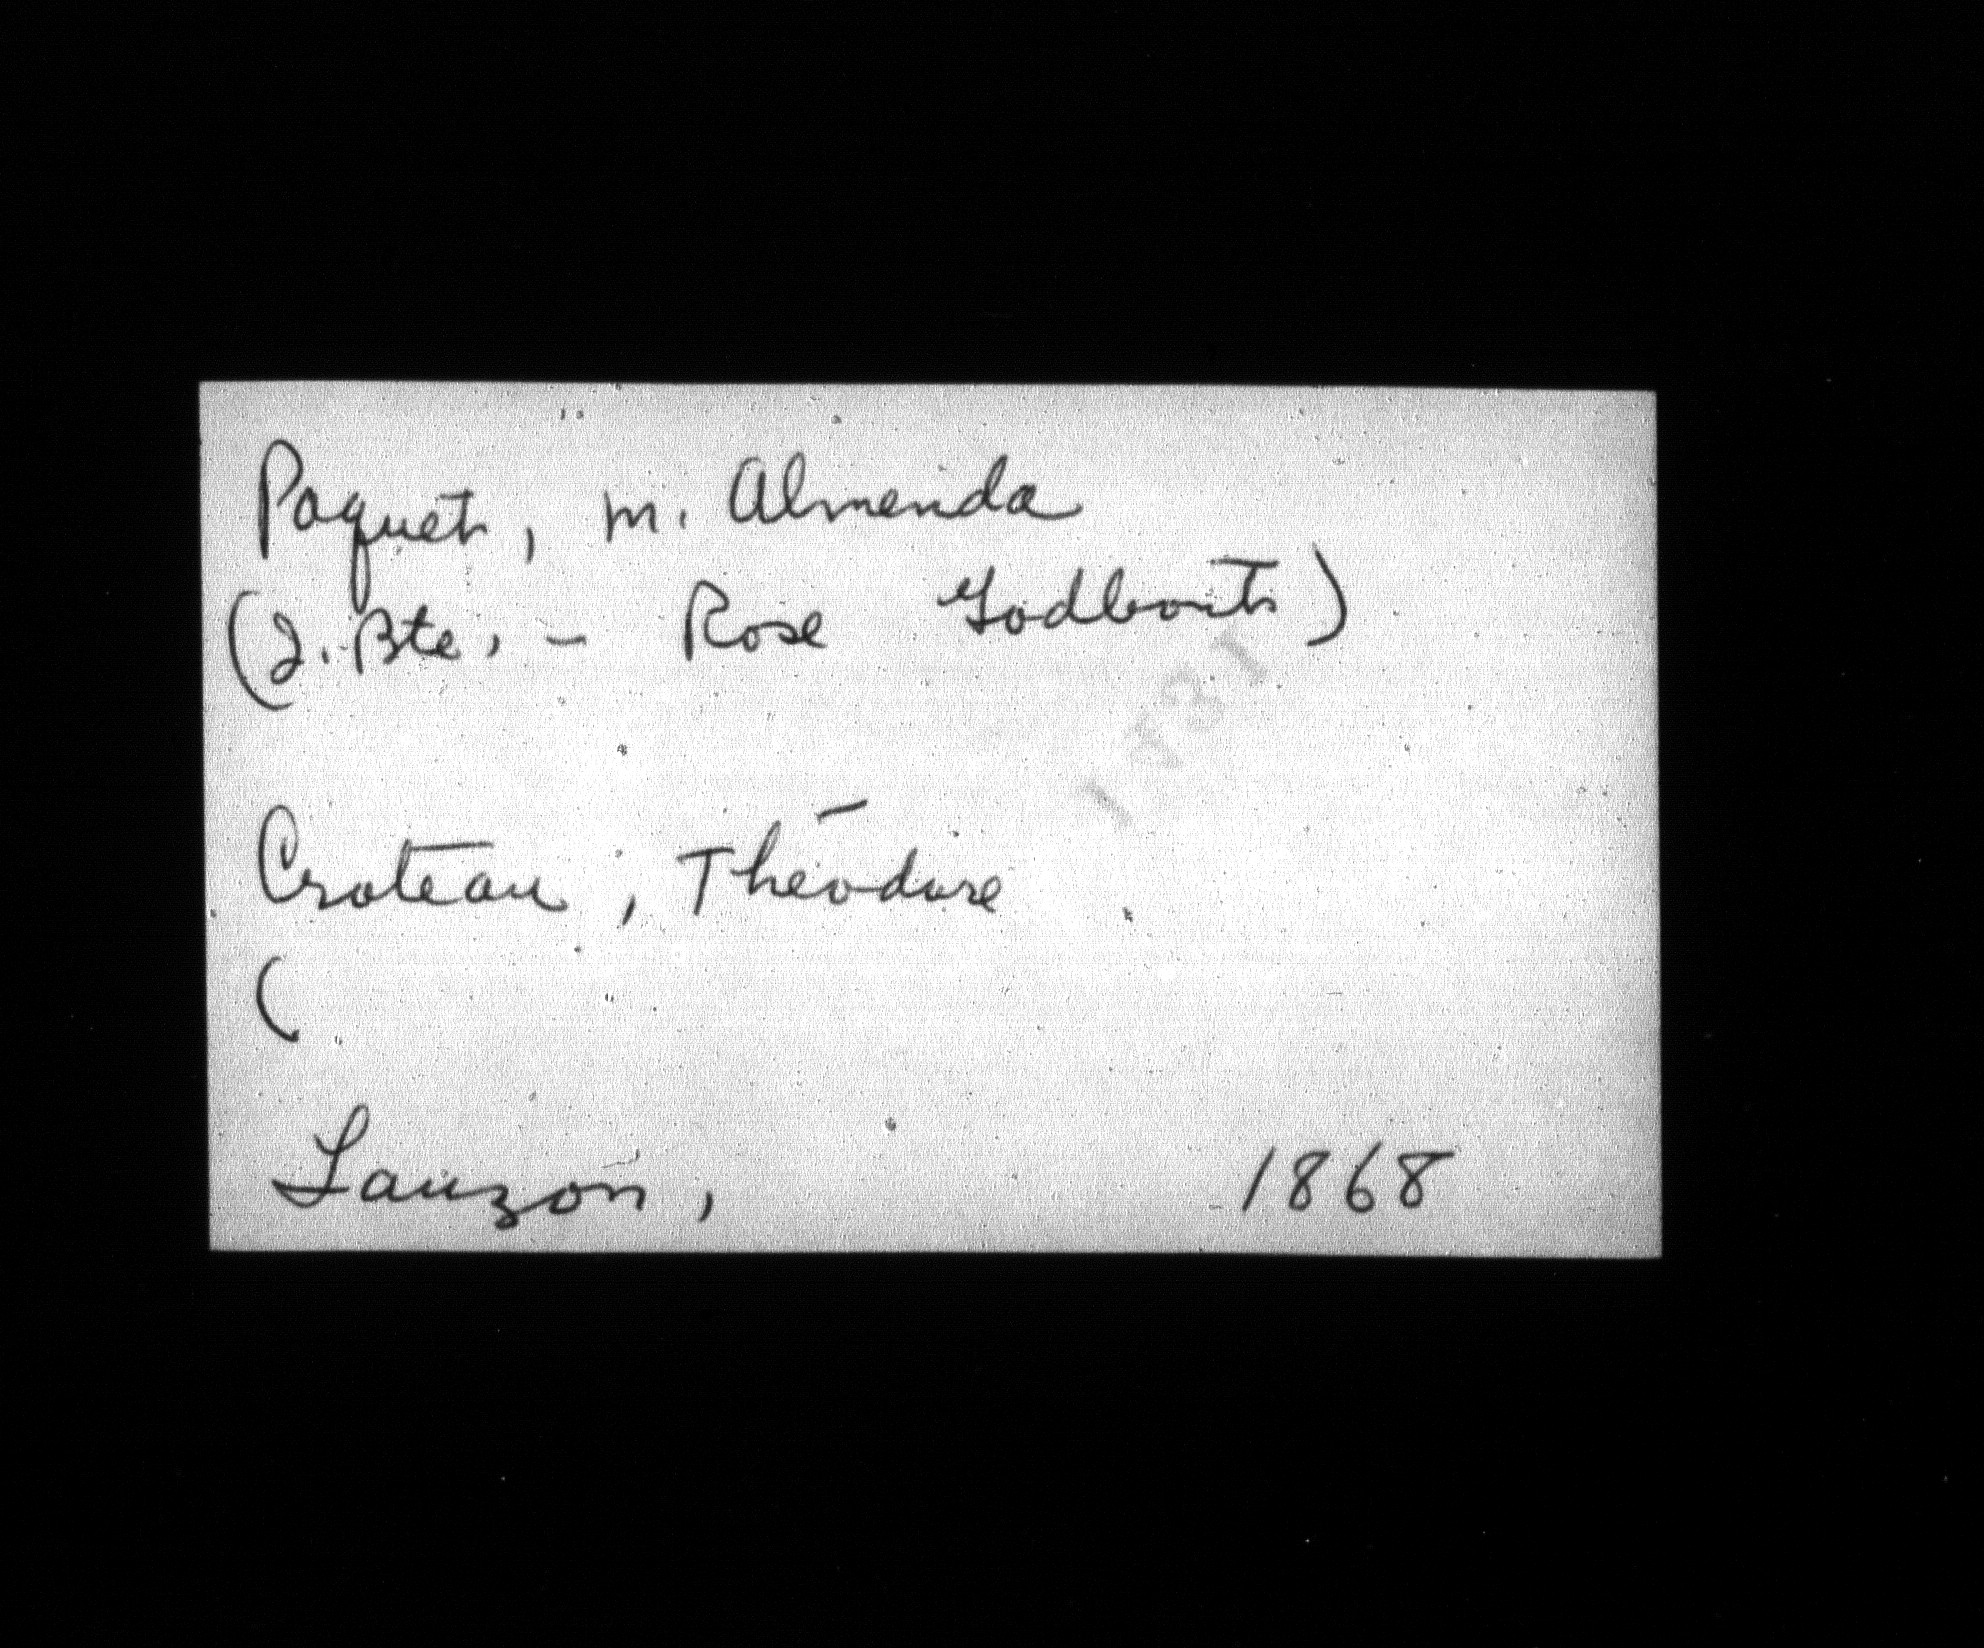 Paquet, m. Almenda
(J. Bte, - Rose Godbout)
Croteau, Théodore
(
Lauzon, 1868